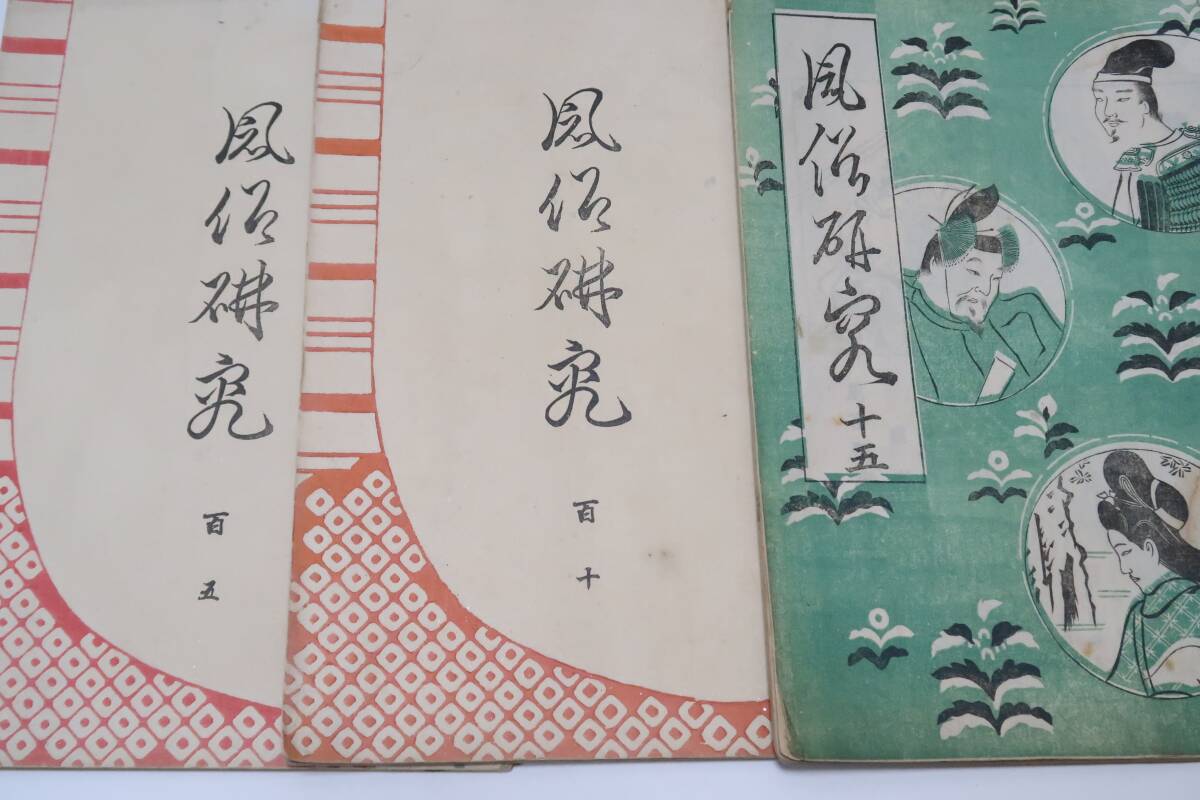 風俗研究
百五
風俗研究
百十
風俗研究 十五